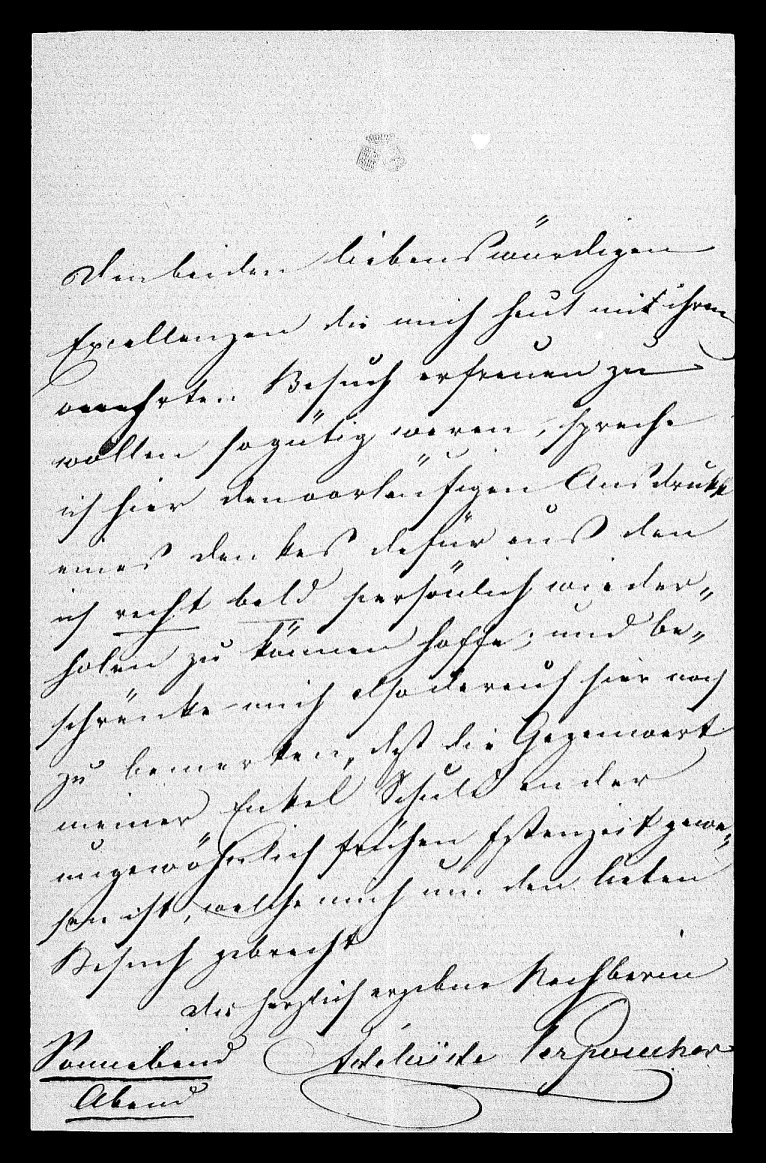 Den beiden liebenswürdigen
Excellenzen die mich heut mit ihrem
geehrten Besuch erfreuen zu
wollen so gütig waren, spreche
ich hier den vorläufigen Ausdruck
eines Dankes dafür aus den
ich recht bald persönlich wieder-
holen zu können hoffe, und be-
schränke mich also darauf hier noch
zu bemerken, daß die Gegenwart
meiner Enkel Schuld an der
ungewöhnlich frühen Essenzeit gewe-
sen ist, welche mich um den lieben
Besuch gebracht
Die herzlich ergebne Nachbarin
Sonnabend Adelaïde Perponcher
Abend